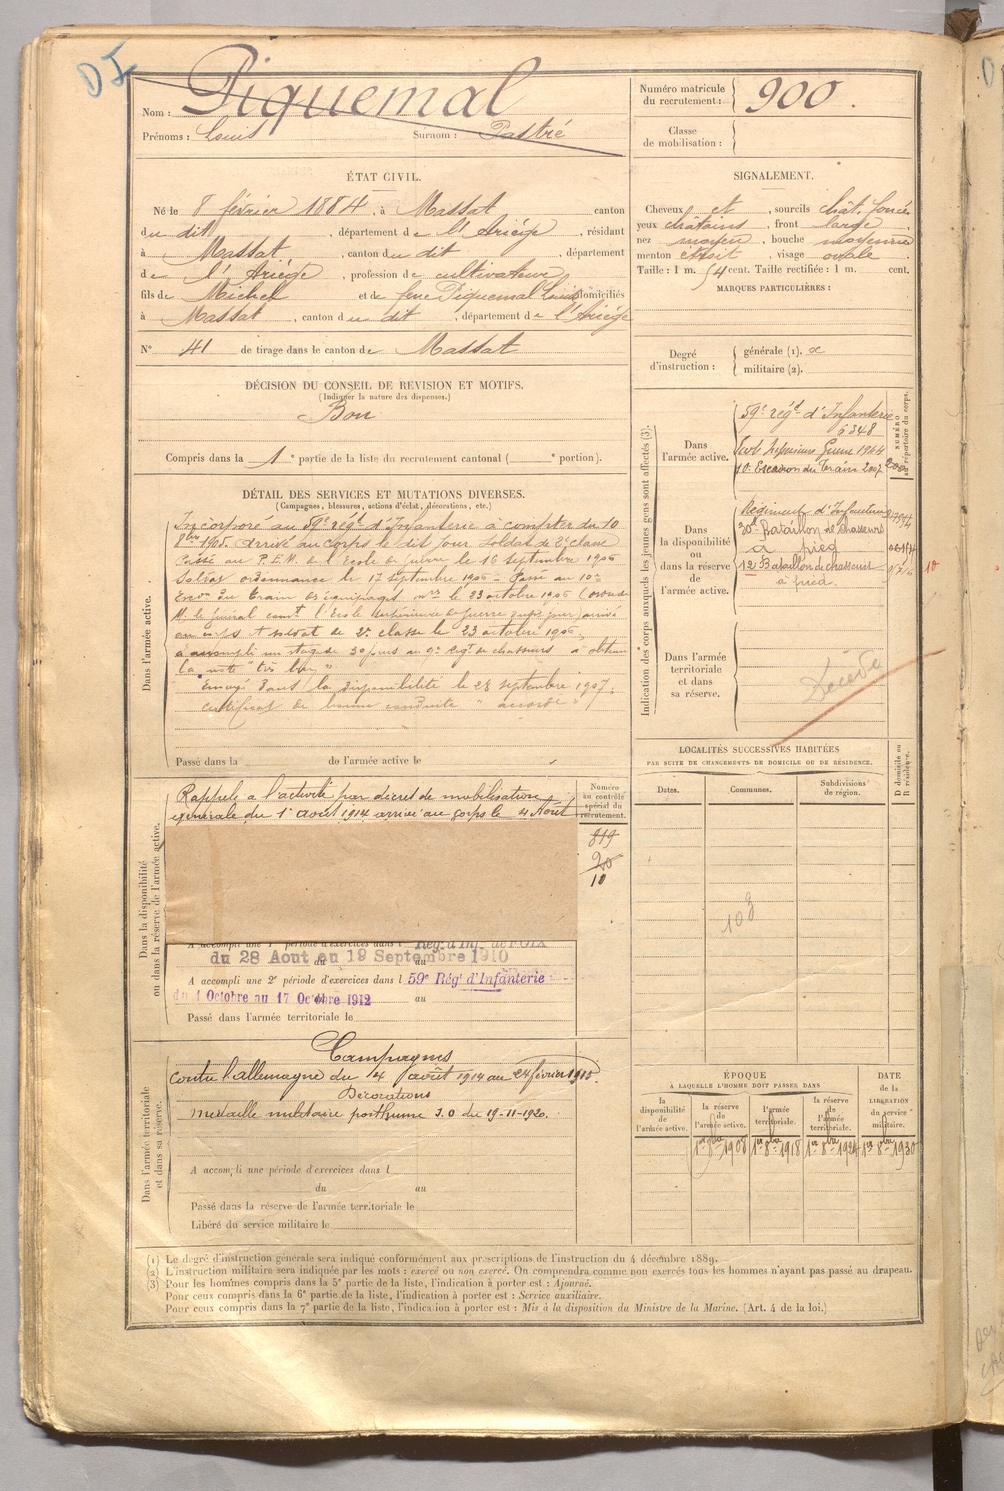 DI
Nom : Piquemal
Prénoms : Louis Surnom : Pastré
Numéro matricule du recrutement : 900.
Classe de mobilisation :
ÉTAT CIVIL.
Né le 8 février 1884, à Massat canton
du dit, département de l'Ariège, résidant
à Massat, canton du dit, département
de l'Ariège, profession de cultivateur
fils de Michel et de feue Piquemal Louise domiciliés
à Massat, canton du dit, département de l'Ariège
N° 41 de tirage dans le canton de Massat
SIGNALEMENT.
Cheveux et, sourcils chât. foncés
yeux châtains, front large,
nez moyen, bouche moyenne
menton étroit, visage ovale
Taille : 1 m. 54 cent. Taille rectifiée : 1 m. cent.
MARQUES PARTICULIÈRES :
Degré d'instruction : générale (1).
militaire (2).
DÉCISION DU CONSEIL DE REVISION ET MOTIFS.
(Indiquer la nature des dispenses.)
Bon
Compris dans la 1e partie de la liste du recrutement cantonal ( e portion).
DÉTAIL DES SERVICES ET MUTATIONS DIVERSES.
(Campagnes, blessures, actions d'éclat, décorations, etc.)
Dans l'armée active.
Incorporé au 59e régt d'Infanterie à compter du 10
8bre 1905. Arrivé au corps le dit jour soldat de 2e classe
Passé au P.E.M. de l'Ecole de guerre le 16 septembre 1906
Soldat ordonnance le 17 septembre 1906 - Passé au 10e
Eson du train des équipages mres le 23 octobre 1906
M. le général comt l'Ecole supérieure de guerre arrivé
au corps et soldat de 2e classe le 23 octobre 1906
a accompli un stage de 30 jours au 9e Régt de chasseurs a obtenu
la note "très bien"
Envoyé dans la disponibilité le 28 septembre 1907.
certificat de bonne conduite "accordé"
Passé dans la de l'armée active le
Indication des corps auxquels les jeunes gens sont affectés (3).
NUMÉRO au répertoire du corps.
Dans l'armée active.
59e régt d'Infanterie
6348
10e Escadron du Train 2007
Dans la disponibilité ou dans la réserve de l'armée active.
Régiment d'Infanterie
30e Bataillon de chasseurs
à pied
12e Bataillon de chasseurs
à pied.
10
Dans l'armée territoriale et dans sa réserve.
Décédé
Dans la disponibilité ou dans la réserve de l'armée active.
Rappelé à l'activité par décret de mobilisation
générale du 1er août 1914 arrivé au corps le 4 Août
Numéro au contrôle spécial du recrutement.
819
20
10
A accompli une 1e période d'exercices dans l Rég. d'Inf. de FOIX
du 28 Aout au 19 Septembre 1910
A accompli une 2e période d'exercices dans l 59e Régt d'Infanterie
du 1 Octobre au 17 Octobre 1912 au
Passé dans l'armée territoriale le
LOCALITÉS SUCCESSIVES HABITÉES
PAR SUITE DE CHANGEMENTS DE DOMICILE OU DE RÉSIDENCE.
D domicile ou R résidence.
Dates. Communes. Subdivisions de région.
103
Dans l'armée territoriale et dans sa réserve.
Campagnes
Contre l'allemagne du 4 août 1914 au 24 février 1915.
Décorations
médaille militaire posthume J.O du 19-11-1920.
A accompli une période d'exercices dans l
du au
Passé dans la réserve de l'armée territoriale le
Libéré du service militaire le
ÉPOQUE
A LAQUELLE L'HOMME DOIT PASSER DANS
DATE de la LIBÉRATION du service militaire.
la disponibilité de l'armée active.
la réserve de l'armée active.
l'armée territoriale.
la réserve de l'armée territoriale.
1er 8bre 1908 1er 8bre 1918 1er 8bre 1924 1er 8bre 1930
(1) Le degré d'instruction générale sera indiqué conformément aux prescriptions de l'instruction du 4 décembre 1889.
(2) L'instruction militaire sera indiquée par les mots : exercé ou non exercé. On comprendra comme non exercés tous les hommes n'ayant pas passé au drapeau.
(3) Pour les hommes compris dans la 5e partie de la liste, l'indication à porter est : Ajourné.
Pour ceux compris dans la 6e partie de la liste, l'indication à porter est : Service auxiliaire.
Pour ceux compris dans la 7e partie de la liste, l'indication à porter est : Mis à la disposition du Ministre de la Marine. (Art. 4 de la loi.)